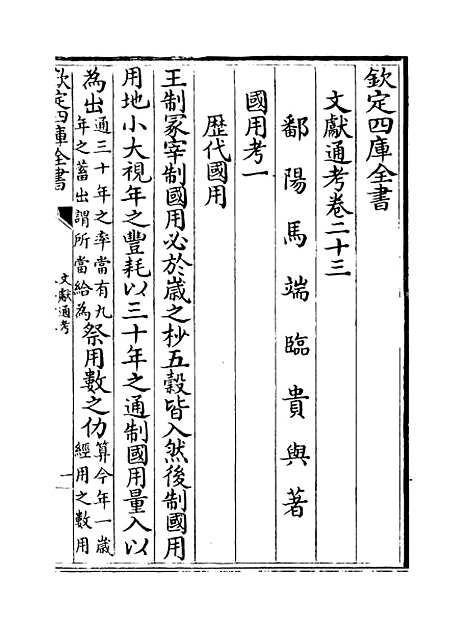 欽定四庫全書
文獻通考卷二十三
鄱陽馬端臨貴與著
國用考一
歴代國用
王制冢宰制國用必於歳之杪五穀皆入然後制國用
用地小大視年之豐耗以三十年之通制國用量入以
為出通三十年之率當有九年之蓄出謂所當給為祭用數之仂算今年一歳經用之數用
欽定四庫全書
文獻通考
一